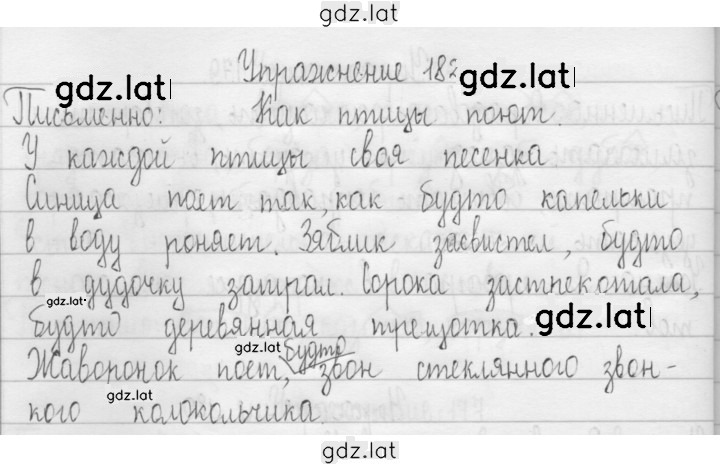 gdz.lat
Упражнение 182
gdz.lat gdz.lat
Письменно: Как птицы поют.
У каждой птицы своя песенка
Синица поет так, как будто капельки
в воду роняет. Зяблик засвистел, будто
в дудочку заиграл. Сорока застрекотала,
gdz.lat gdz.lat
будто деревянная трещотка.
gdz.lat будто
Жаворонок поет, звон стеклянного звон-
кого колокольчика
gdz.lat
gdz.lat